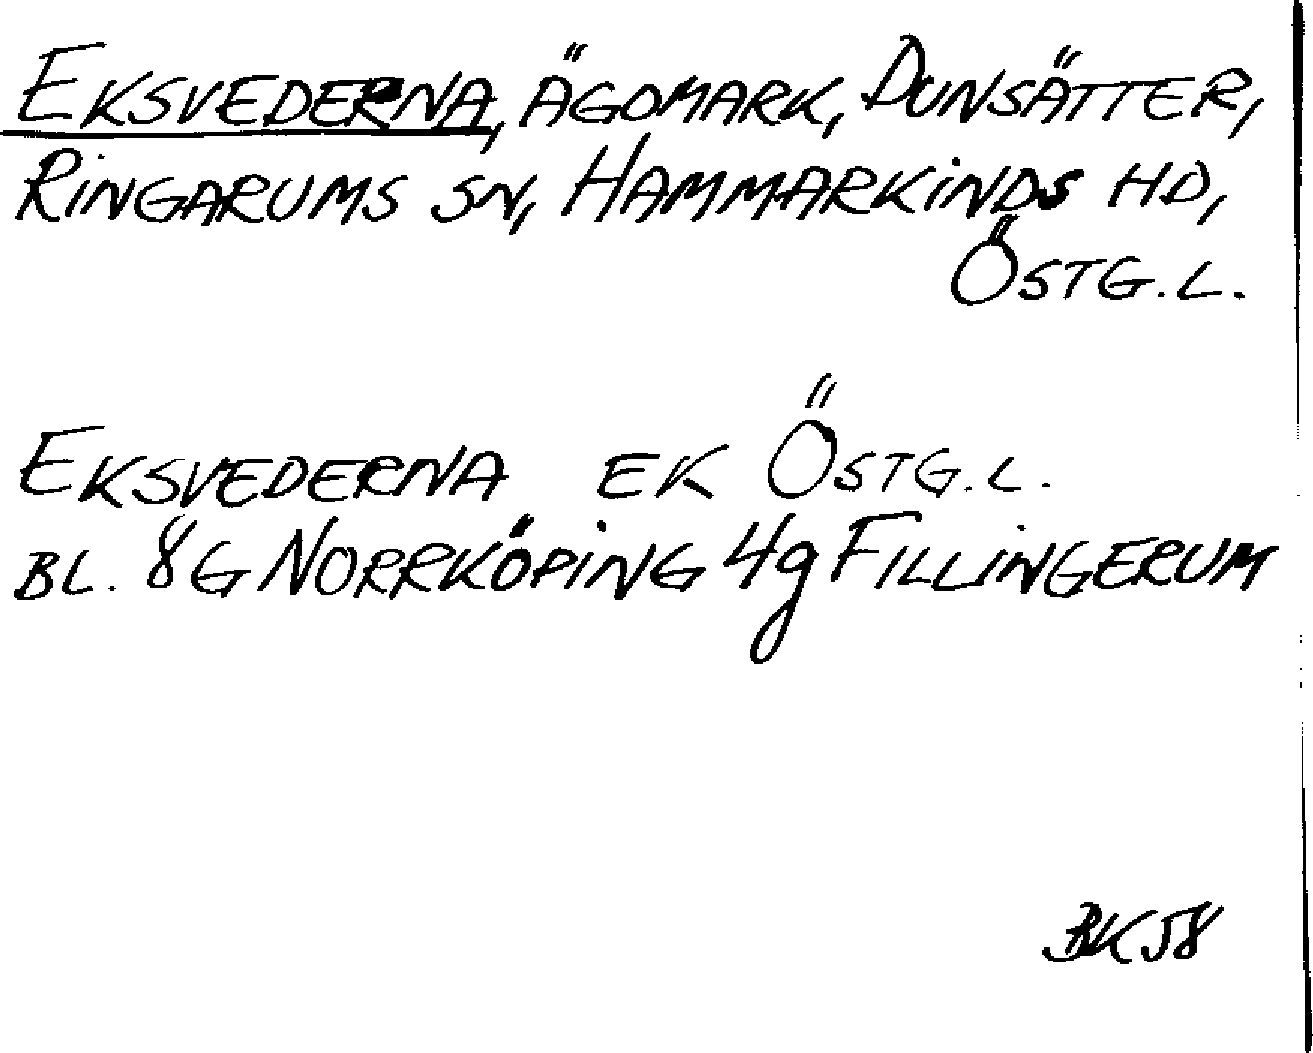 EKSVEDERNA, ÄGOMARK, DUNSÄTTER,
RINGARUMS SN, HAMMARKINDS HD,
ÖSTG.L.
EKSVEDERNA EK ÖSTG.L.
BL. 8G NORRKÖPING 4g FILLINGERUM
BK 58